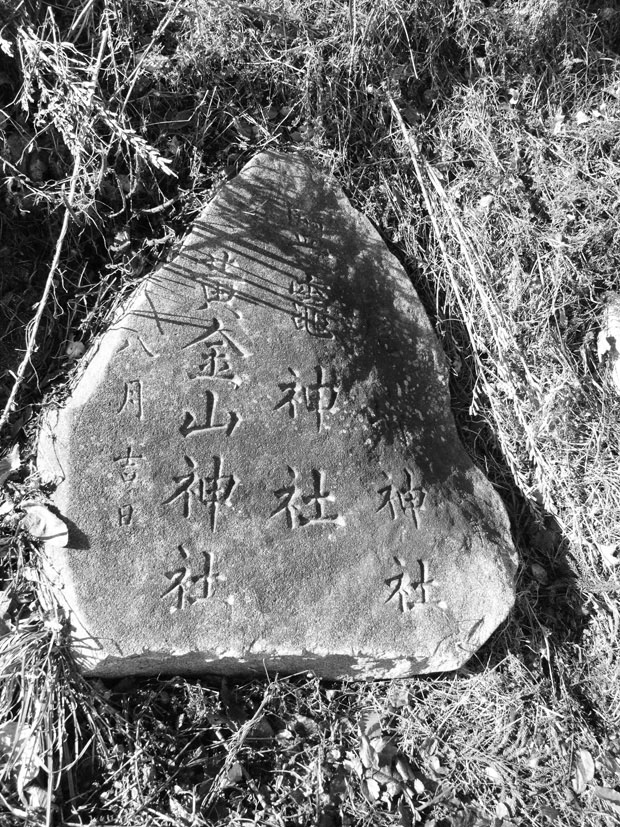 神社
鹽竈神社
黄金山神社
八月吉日